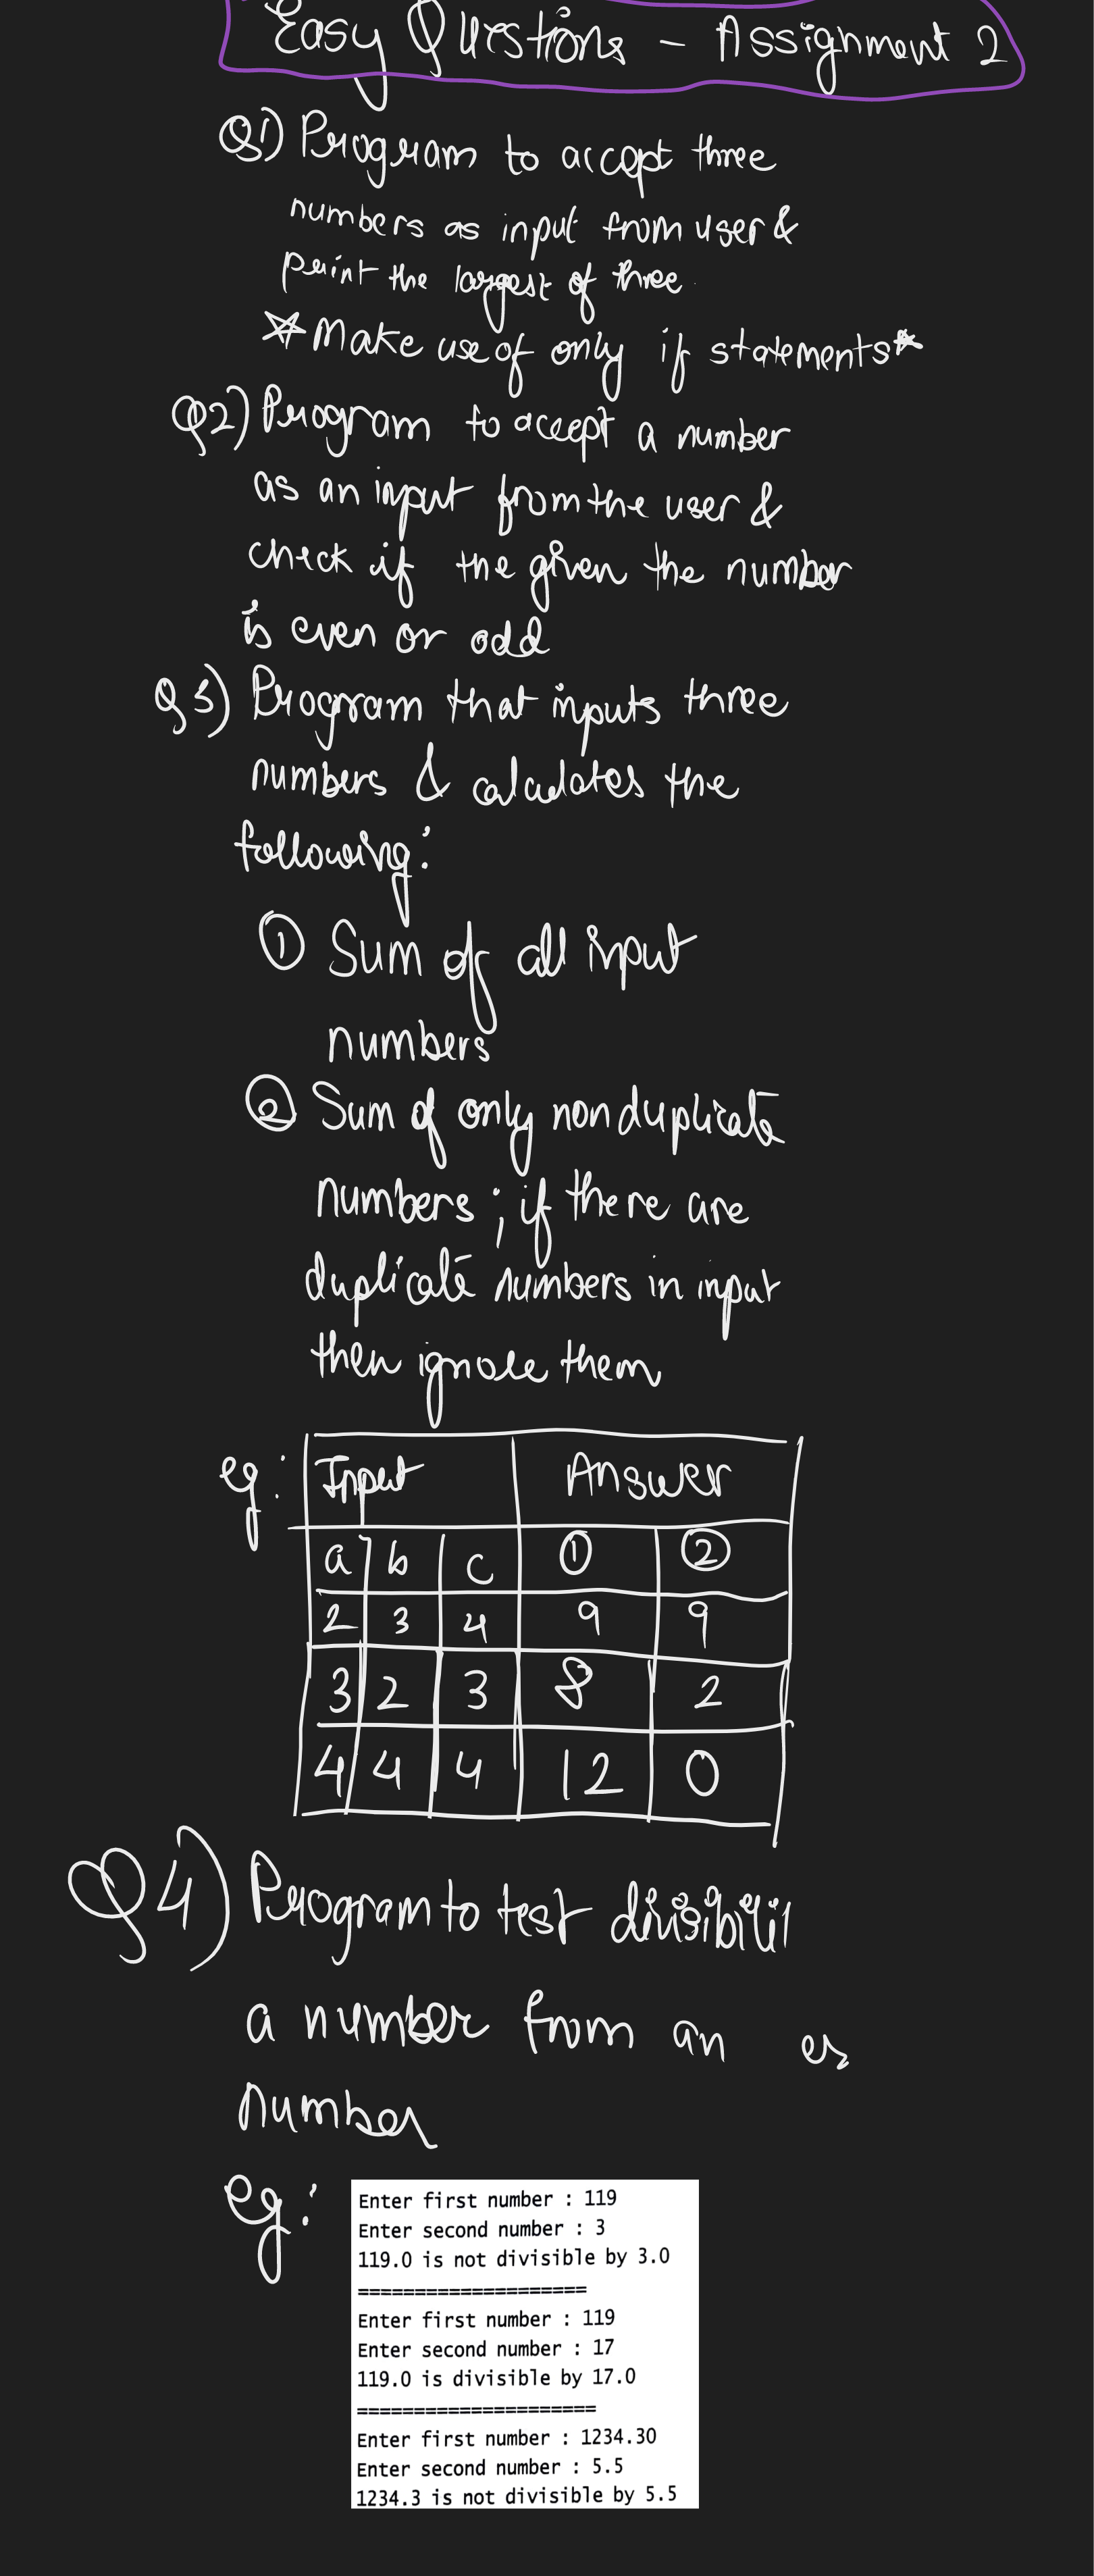 Easy Questions - Assignment 2
Q1) Program to accept three
numbers as input from user &
print the largest of three.
☆ Make use of only if statements ☆
Q2) Program to accept a number
as an input from the user &
check if the given the number
is even or odd
Q3) Program that inputs three
numbers & calculates the
following:
① Sum of all input
numbers
② Sum of only nonduplicate
numbers ; if there are
duplicate numbers in input
then ignore them
eg: Input Answer
a b c ① ②
2 3 4 9 9
3 2 3 8 2
4 4 4 12 0
Q4) Program to test divisibili
a number from an
number
eg:
Enter first number : 119
Enter second number : 3
119.0 is not divisible by 3.0
====================
Enter first number : 119
Enter second number : 17
119.0 is divisible by 17.0
=====================
Enter first number : 1234.30
Enter second number : 5.5
1234.3 is not divisible by 5.5